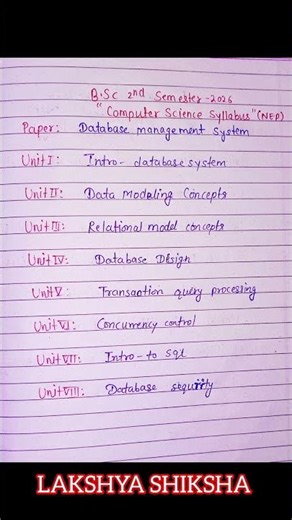 B.Sc 2nd Semester-2026
"Computer Science Syllabus"(NEP)
Paper: Database management system
Unit I: Intro- database system
Unit II: Data Modeling Concepts
Unit III: Relational model concepts
Unit IV: Database Design
Unit V: Transaction query processing
Unit VI: Concurrency control
Unit VII: Intro- to sql
Unit VIII: Database security
LAKSHYA SHIKSHA